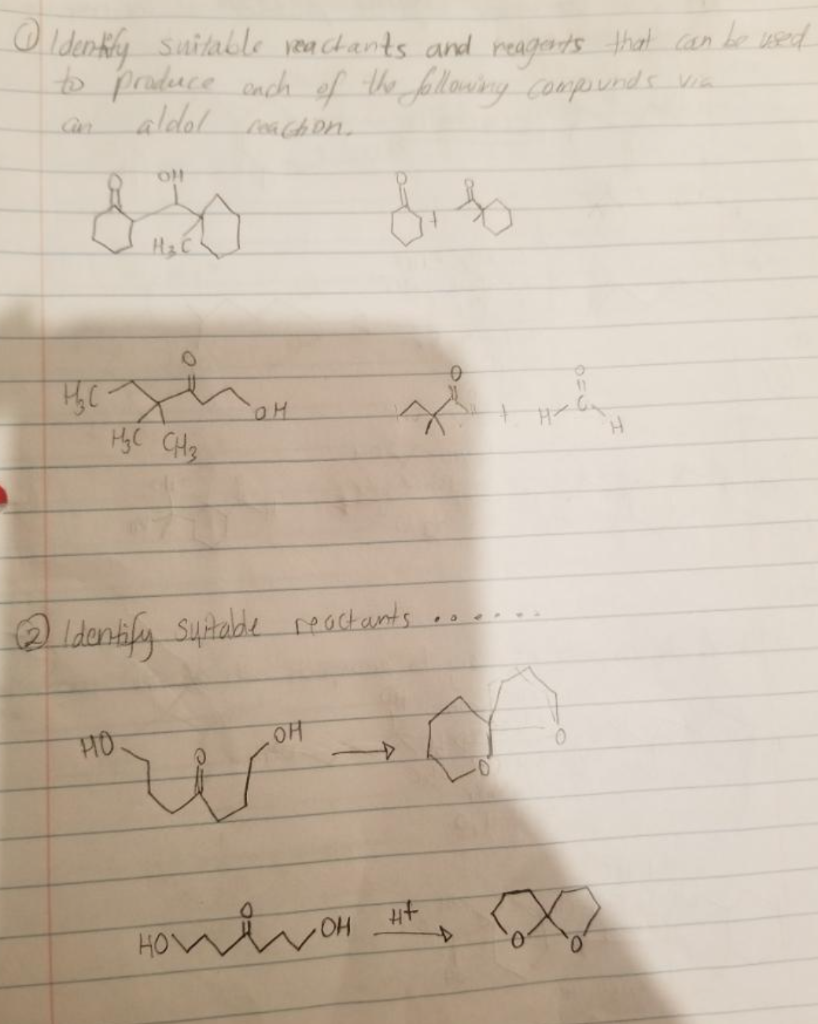 ① Identify suitable reactants and reagents that can be used
to produce each of the following compounds via
an aldol reaction.
O OH O O
H3C +
O O O
H3C OH + H C H
H3C CH3
② Identify suitable reactants .......
HO O OH O
O
HO O OH H+ O O